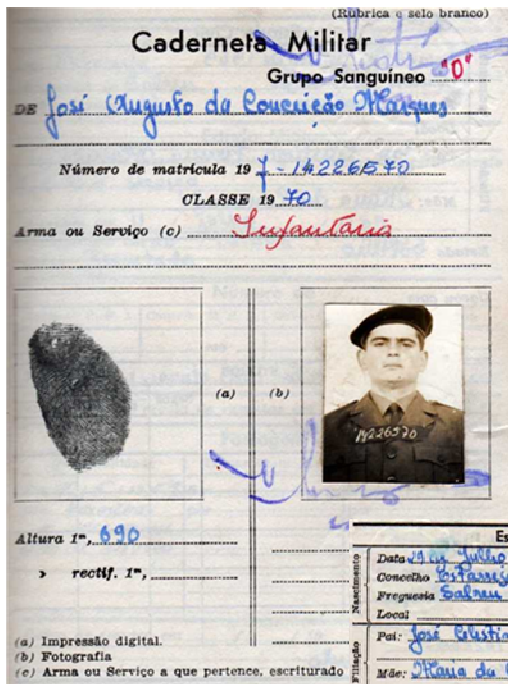 (Rubrica e selo branco)
Caderneta Militar
Grupo Sanguíneo "O"
DE José Augusto da Conceição Marques
Número de matrícula 19 14226570
CLASSE 19 70
Arma ou Serviço (c) Infantaria
(a) (b)
14226570
Altura 1m, 690
» rectif. 1m,
(a) Impressão digital.
(b) Fotografia
(c) Arma ou Serviço a que pertence, escriturado
Es
Nascimento
Data 29 Julho
Concelho Estarreja
Freguesia Salreu
Local
Filiação
Pai: José
Mãe: Maria da